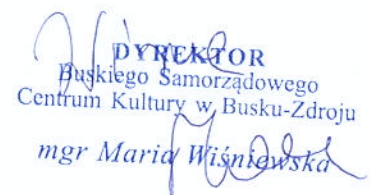 DYREKTOR
Buskiego Samorządowego
Centrum Kultury w Busku-Zdroju
mgr Maria Wiśniewska